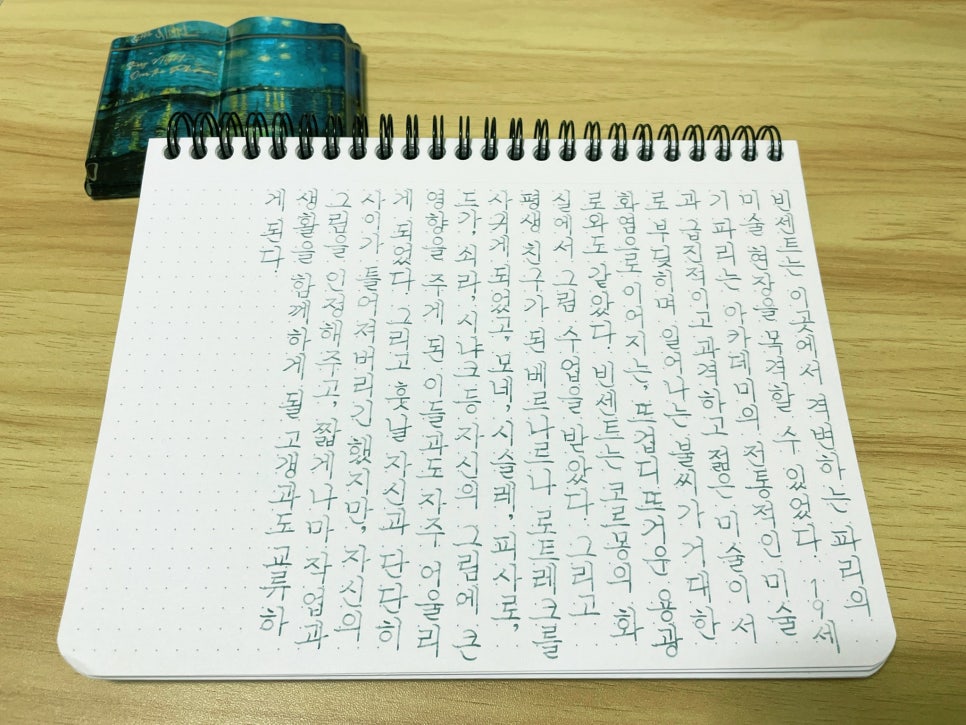 빈센트는 이곳에서 격변하는 파리의
미술 현장을 목격할 수 있었다. 19세
기 파리는 아카데미의 전통적인 미술
과 급진적이고 과격하고 젊은 미술이 서
로 부딪히며 일어나는 불씨가 거대한
화염으로 이어지는, 뜨겁디 뜨거운 용광
로와도 같았다. 빈센트는 코르몽의 화
실에서 그림 수업을 받았다. 그리고
평생 친구가 된 베르나르나 로트레크를
사귀게 되었고, 모네, 시슬레, 피사로,
드가, 쇠라, 시냐크 등 자신의 그림에 큰
영향을 주게 된 이들과도 자주 어울리
게 되었다. 그리고 훗날 자신과 단단히
사이가 틀어져버리긴 했지만, 자신의
그림을 인정해 주고, 짧게나마 작업과
생활을 함께하게 될 고갱과도 교류하
게 된다.